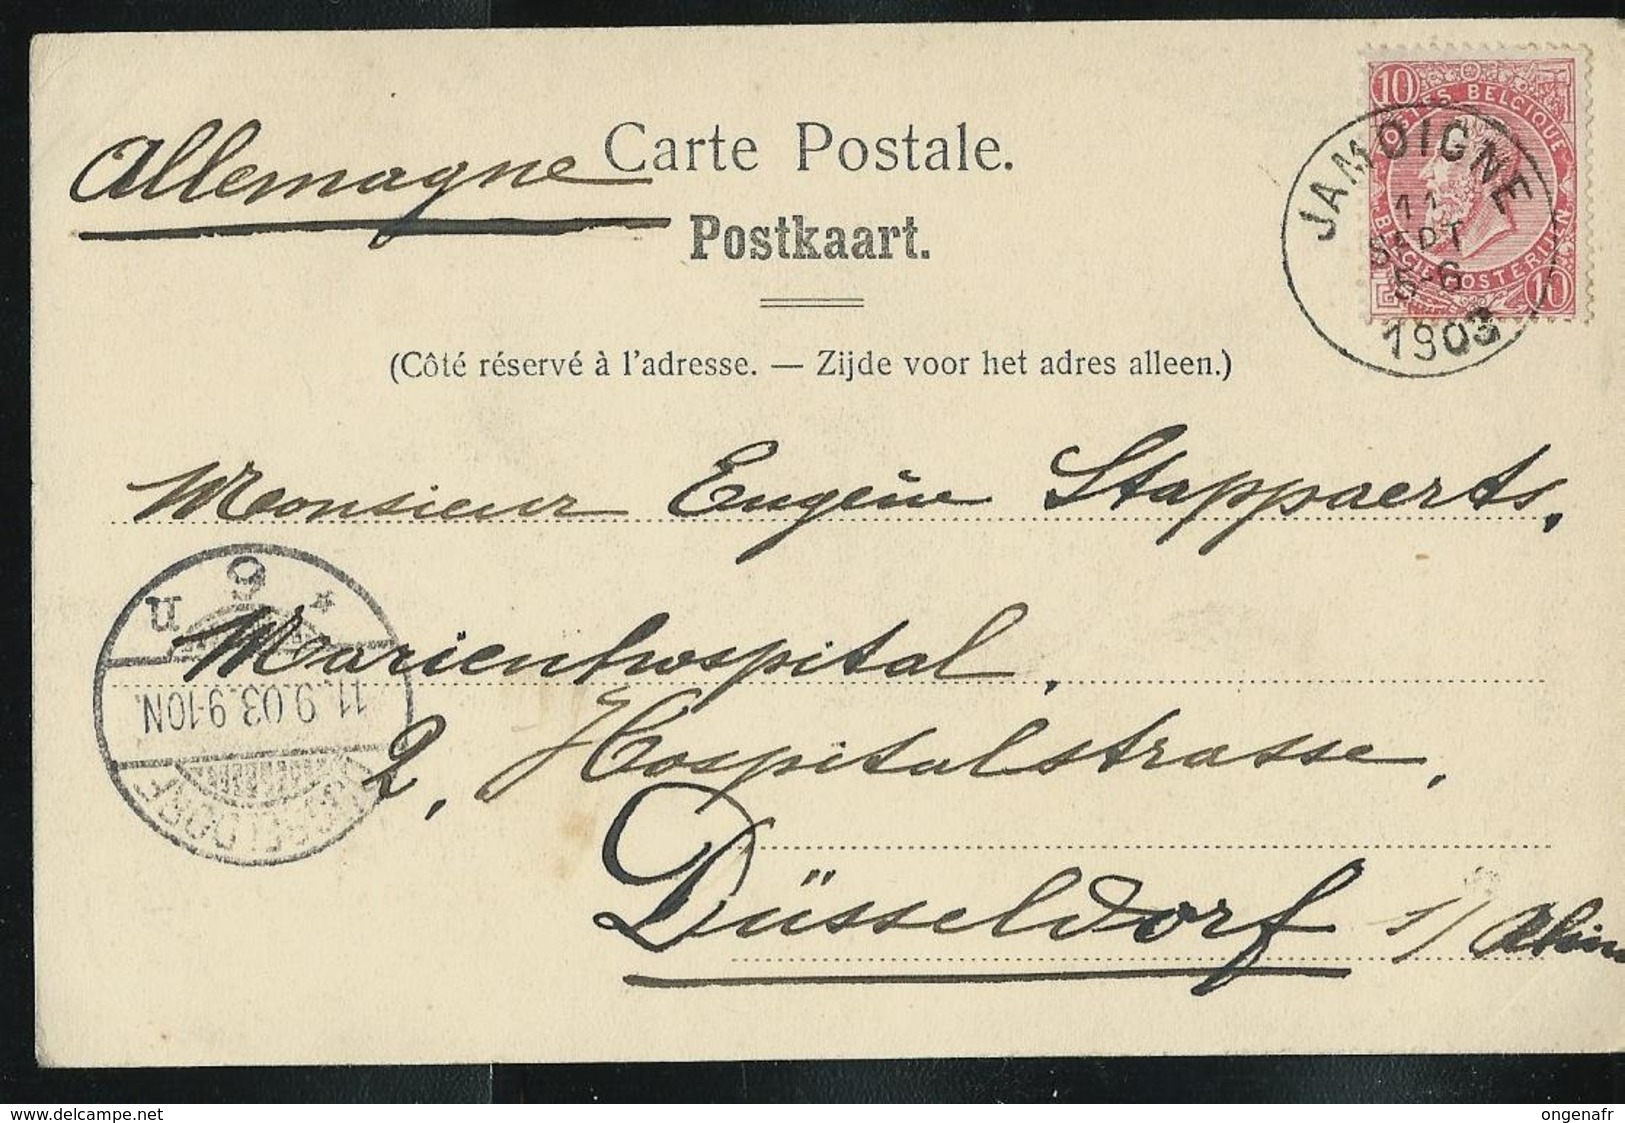 Allemagne
Carte Postale.
Postkaart.
(Côté réservé à l'adresse. — Zijde voor het adres alleen.)
10
POSTES BELGIQUE
10
JAMOIGNE
11
SEPT
5-6
1903
Monsieur Eugène Stappaerts,
Marienhospital,
2, Hospitalstrasse,
Düsseldorf s/ Rhin
6
n
11.9.03.9-10N.
DÜSSELDORF
delcampe.net
ongenafr